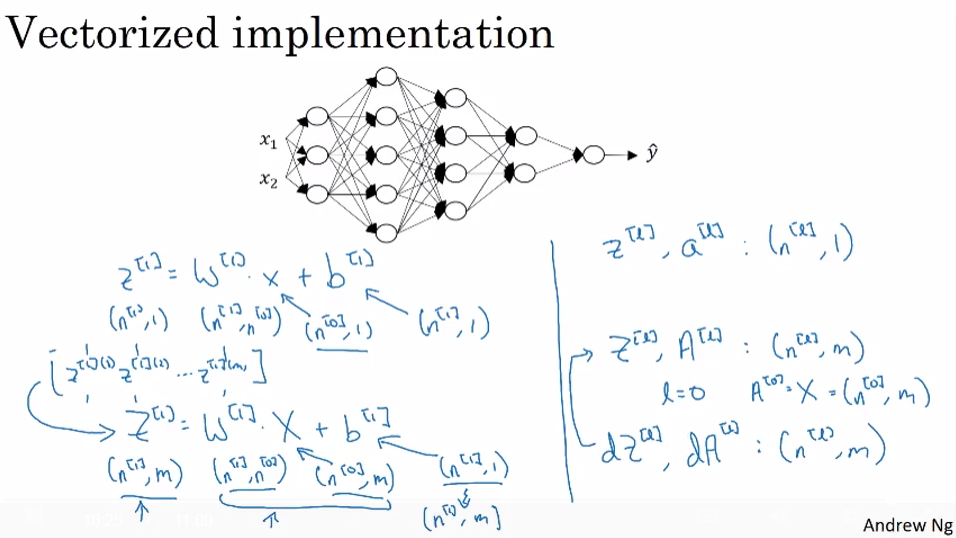 Vectorized implementation
x₁
x₂
ŷ
z^[1] = W^[1] · x + b^[1]
(n^[1], 1) (n^[1], n^[0]) (n^[0], 1) (n^[1], 1)
[ z^[1](1) z^[1](2) ... z^[1](m) ]
Z^[1] = W^[1] · X + b^[1]
(n^[1], m) (n^[1], n^[0]) (n^[0], m) (n^[1], 1)
(n^[1], m)
z^[l], a^[l] : (n^[l], 1)
Z^[l], A^[l] : (n^[l], m)
l=0 A^[0] = X = (n^[0], m)
dZ^[l], dA^[l] : (n^[l], m)
Andrew Ng